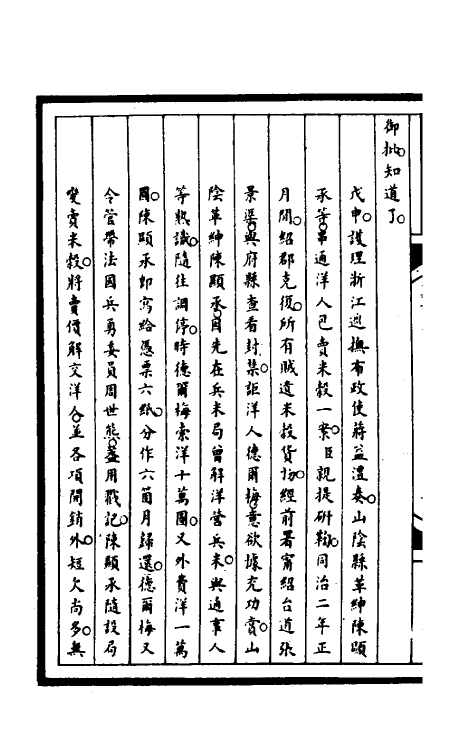 御批。知道了。
戊申。護理浙江巡撫布政使蔣益澧奏。山陰縣革紳陳顯
承等。串通洋人巴賣米穀一案。臣親提研鞫。同治二年正
月間。紹郡克復。所有賊遺米穀貨物。經前署甯紹台道張
景渠。與府縣查看封禁。詎洋人德爾梅。意欲據充功賞。山
陰革紳陳顯承。因先在兵米局曾解洋營兵米。與通事人
等熟識。隨往調停。時德爾梅索洋十萬圓。又外費洋一萬
圓。陳顯承卽寫給憑票六紙。分作六箇月歸還。德爾梅又
令管帶法國兵勇委員周世熊。蓋用戳記。陳顯承隨設局
變賣米穀。將賣價解交洋人。並各項開銷外。短欠尚多。無